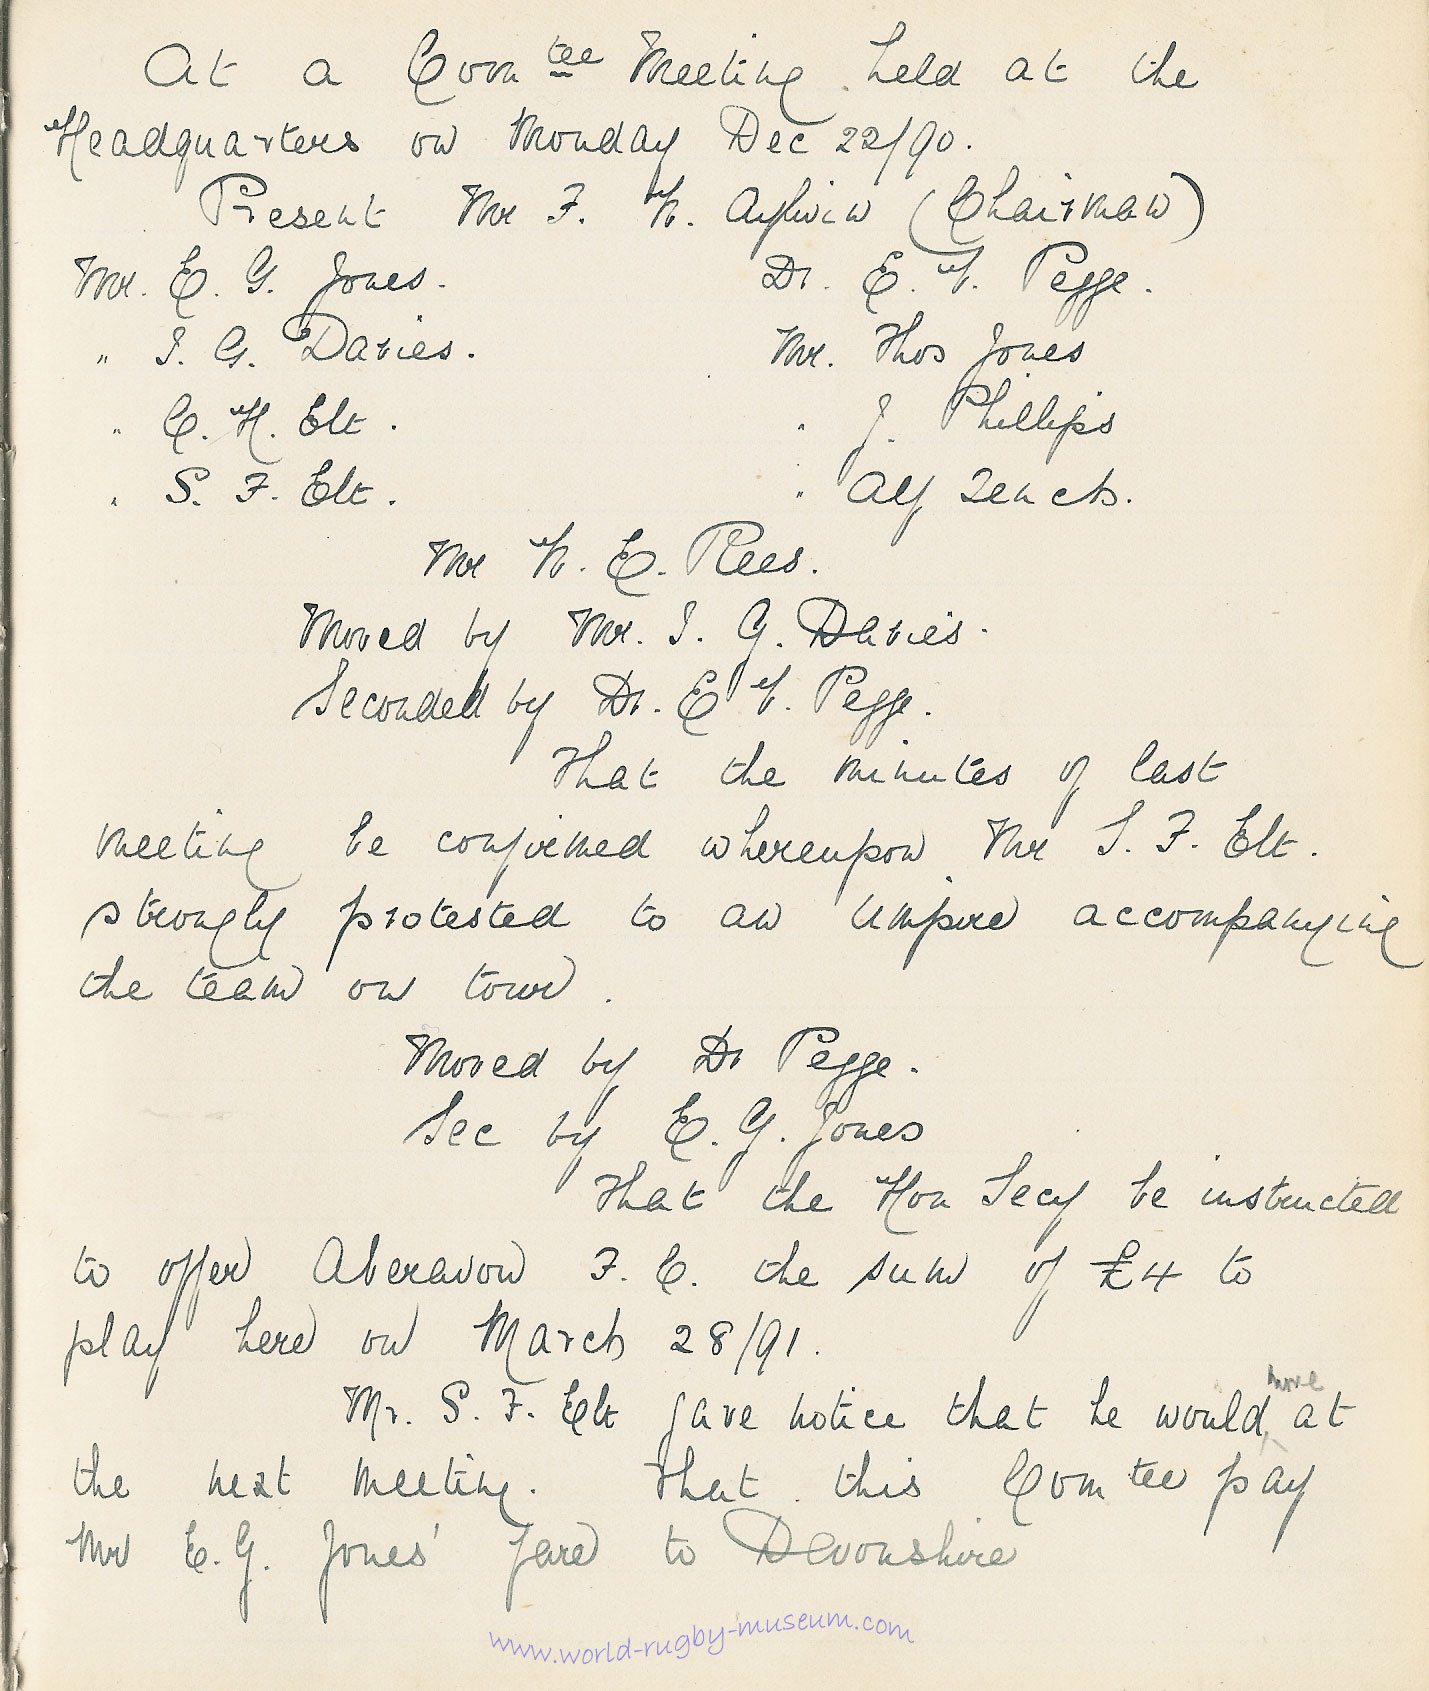 At a Com tee Meeting held at the
Headquarters on Monday Dec 22/90.
Present Mr F. W. Aylwin (Chairman)
Mr. E. G. Jones. Dr. E. V. Pegge.
" I. G. Davies. Mr. Thos Jones
" C. H. Elt. " J. Phillips
" S. F. Elt. " Alf Tench.
Mr W. E. Rees.
Moved by Mr. I. G. Davies.
Seconded by Dr. E V. Pegge.
That the minutes of last
meeting be confirmed whereupon Mr S. F. Elt.
strongly protested to an umpire accompanying
the team on tour.
Moved by Dr Pegge.
Sec by E. G. Jones
That the Hon Secy be instructed
to offer Aberavon F. C. the sum of £4 to
play here on March 28/91.
Mr. S. F. Elt gave notice that he would move at
the next meeting. That this Com tee pay
Mr E. G. Jones' fare to Devonshire
www.world-rugby-museum.com